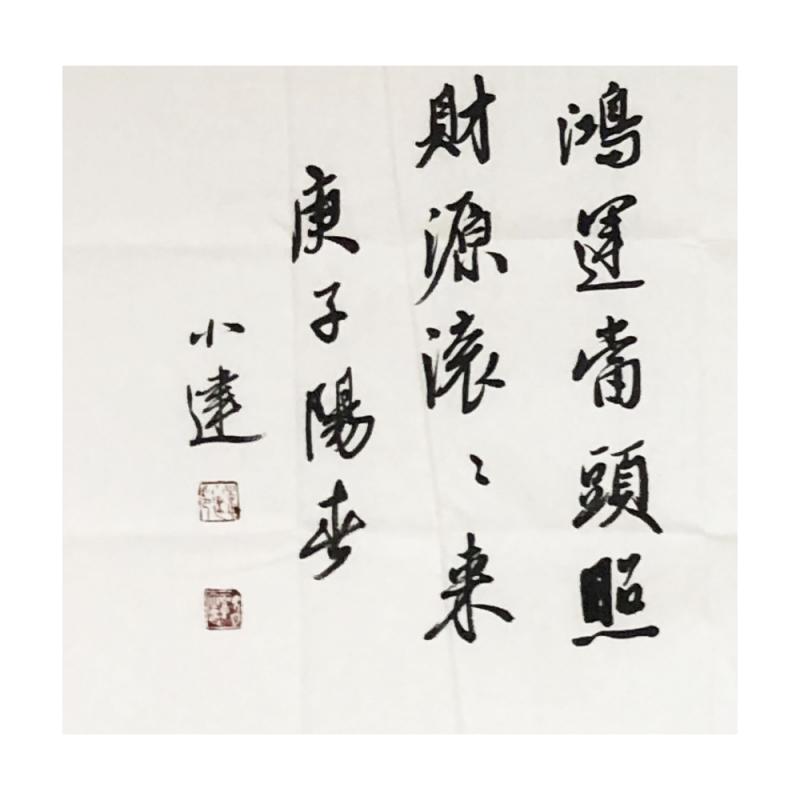 鴻運當頭照
財源滚〻来
庚子陽春
小達